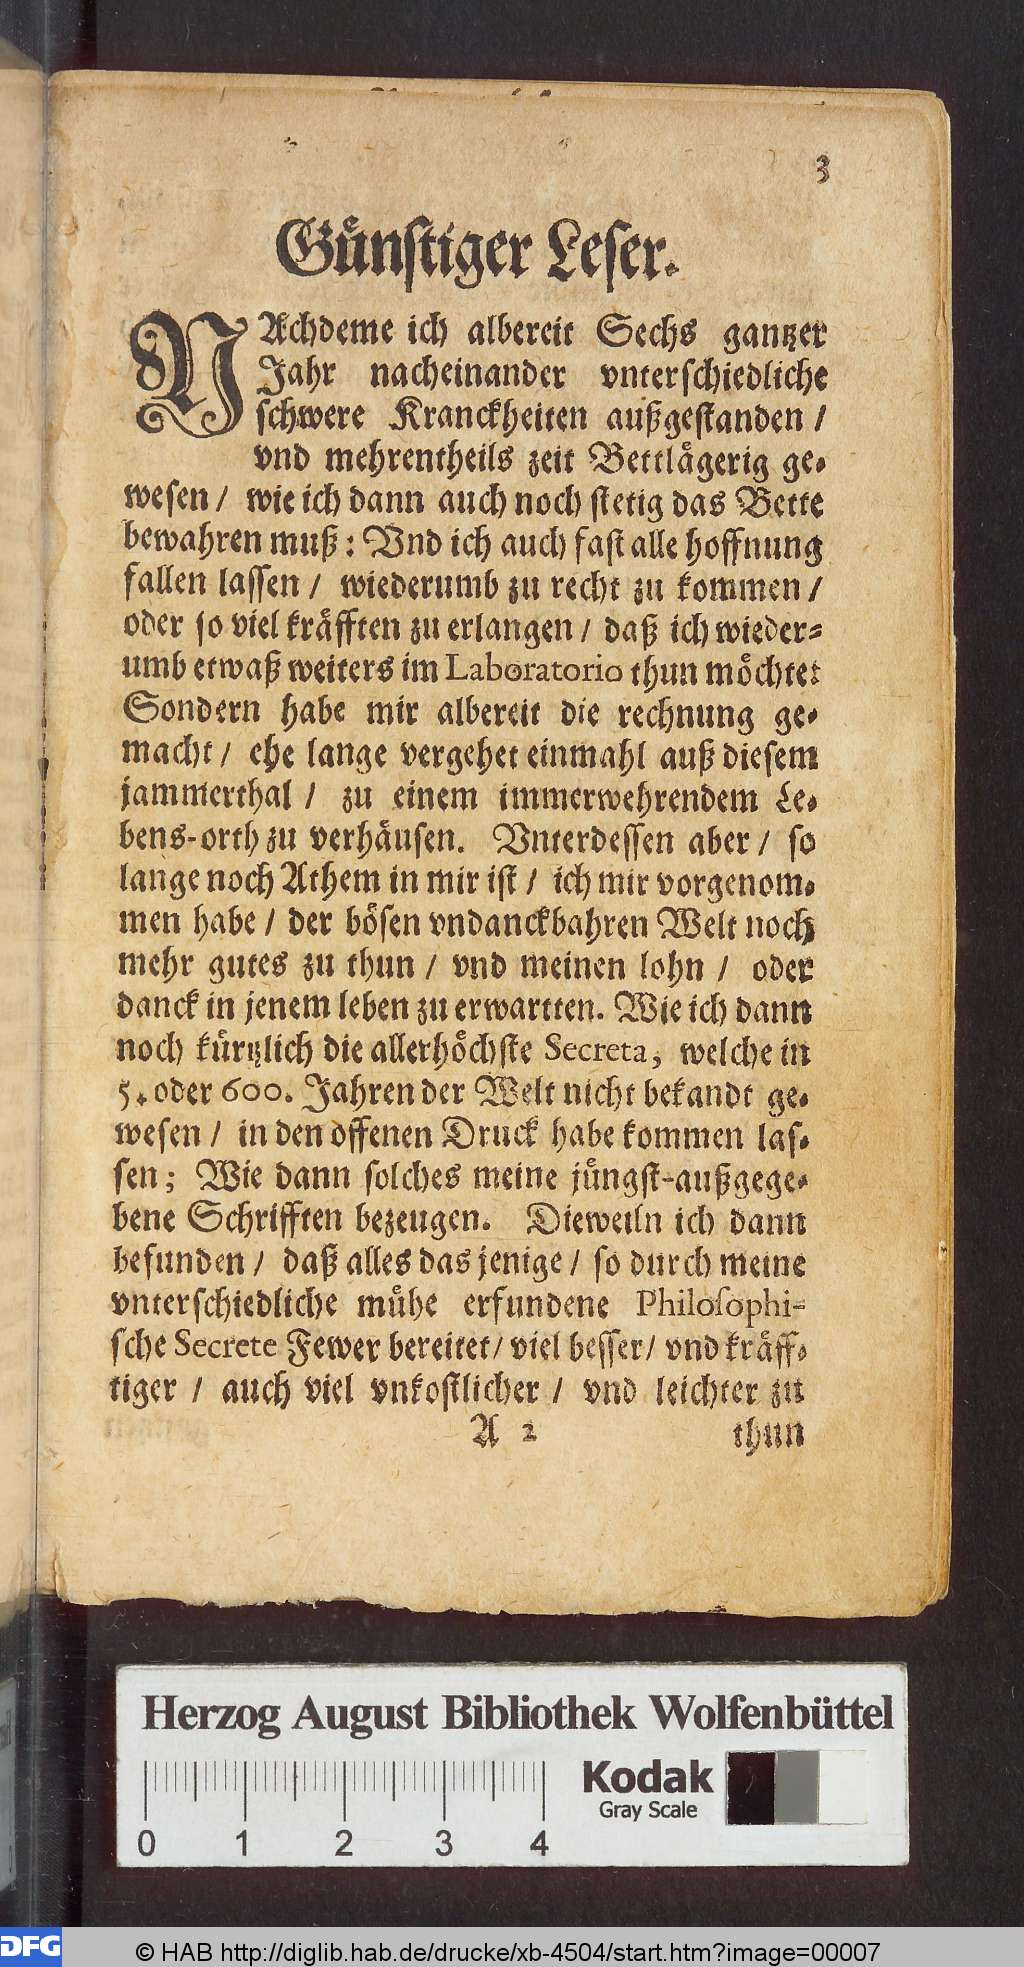 3
Günstiger Leser.
NAchdeme ich albereit Sechs gantzer
Jahr nacheinander vnterschiedliche
schwere Kranckheiten außgestanden /
vnd mehrentheils zeit Bettlägerig ge-
wesen / wie ich dann auch noch stetig das Bette
bewahren muß: Vnd ich auch fast alle hoffnung
fallen lassen / wiederumb zu recht zu kommen /
oder so viel kräfften zu erlangen / daß ich wieder-
umb etwaß weiters im Laboratorio thun möchte:
Sondern habe mir albereit die rechnung ge-
macht / ehe lange vergehet einmahl auß diesem
jammerthal / zu einem immerwehrendem Le-
bens-orth zu verhäusen. Vnterdessen aber / so
lange noch Athem in mir ist / ich mir vorgenom-
men habe / der bösen vndanckbahren Welt noch
mehr gutes zu thun / vnd meinen lohn / oder
danck in jenem leben zu erwartten. Wie ich dann
noch kürtzlich die allerhöchste Secreta, welche in
5. oder 600. Jahren der Welt nicht bekandt ge-
wesen / in den offenen Druck habe kommen las-
sen; Wie dann solches meine jüngst-außgege-
bene Schrifften bezeugen. Dieweiln ich dann
befunden / daß alles das jenige / so durch meine
vnterschiedliche mühe erfundene Philosophi-
sche Secrete Fewer bereitet / viel besser / vnd kräff-
tiger / auch viel vnkostlicher / vnd leichter zu
A 2 thun
Herzog August Bibliothek Wolfenbüttel
Kodak
Gray Scale
0 1 2 3 4
DFG © HAB http://diglib.hab.de/drucke/xb-4504/start.htm?image=00007